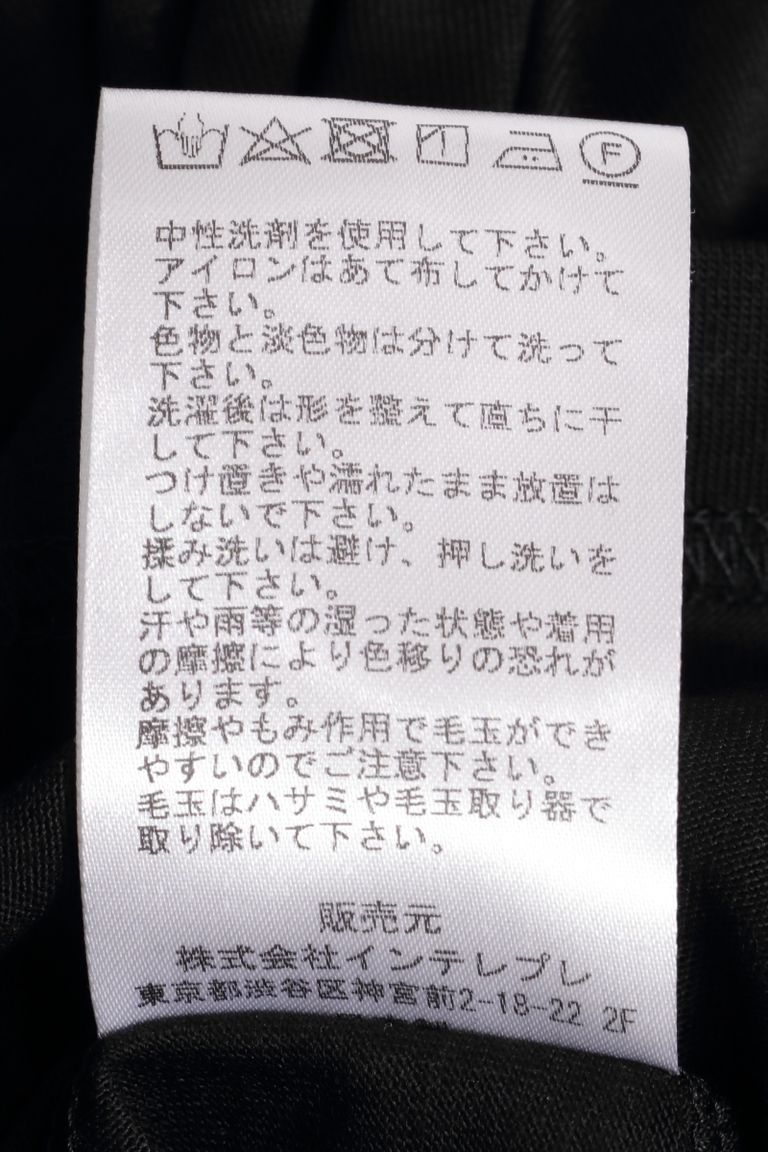 中性洗剤を使用して下さい。
アイロンはあて布してかけて
下さい。
色物と淡色物は分けて洗って
下さい。
洗濯後は形を整えて直ちに干
して下さい。
つけ置きや濡れたまま放置は
しないで下さい。
揉み洗いは避け、押し洗いを
して下さい。
汗や雨等の湿った状態や着用
の摩擦により色移りの恐れが
あります。
摩擦やもみ作用で毛玉ができ
やすいのでご注意下さい。
毛玉はハサミや毛玉取り器で
取り除いて下さい。
販売元
株式会社インテレプレ
東京都渋谷区神宮前2-18-22 2F